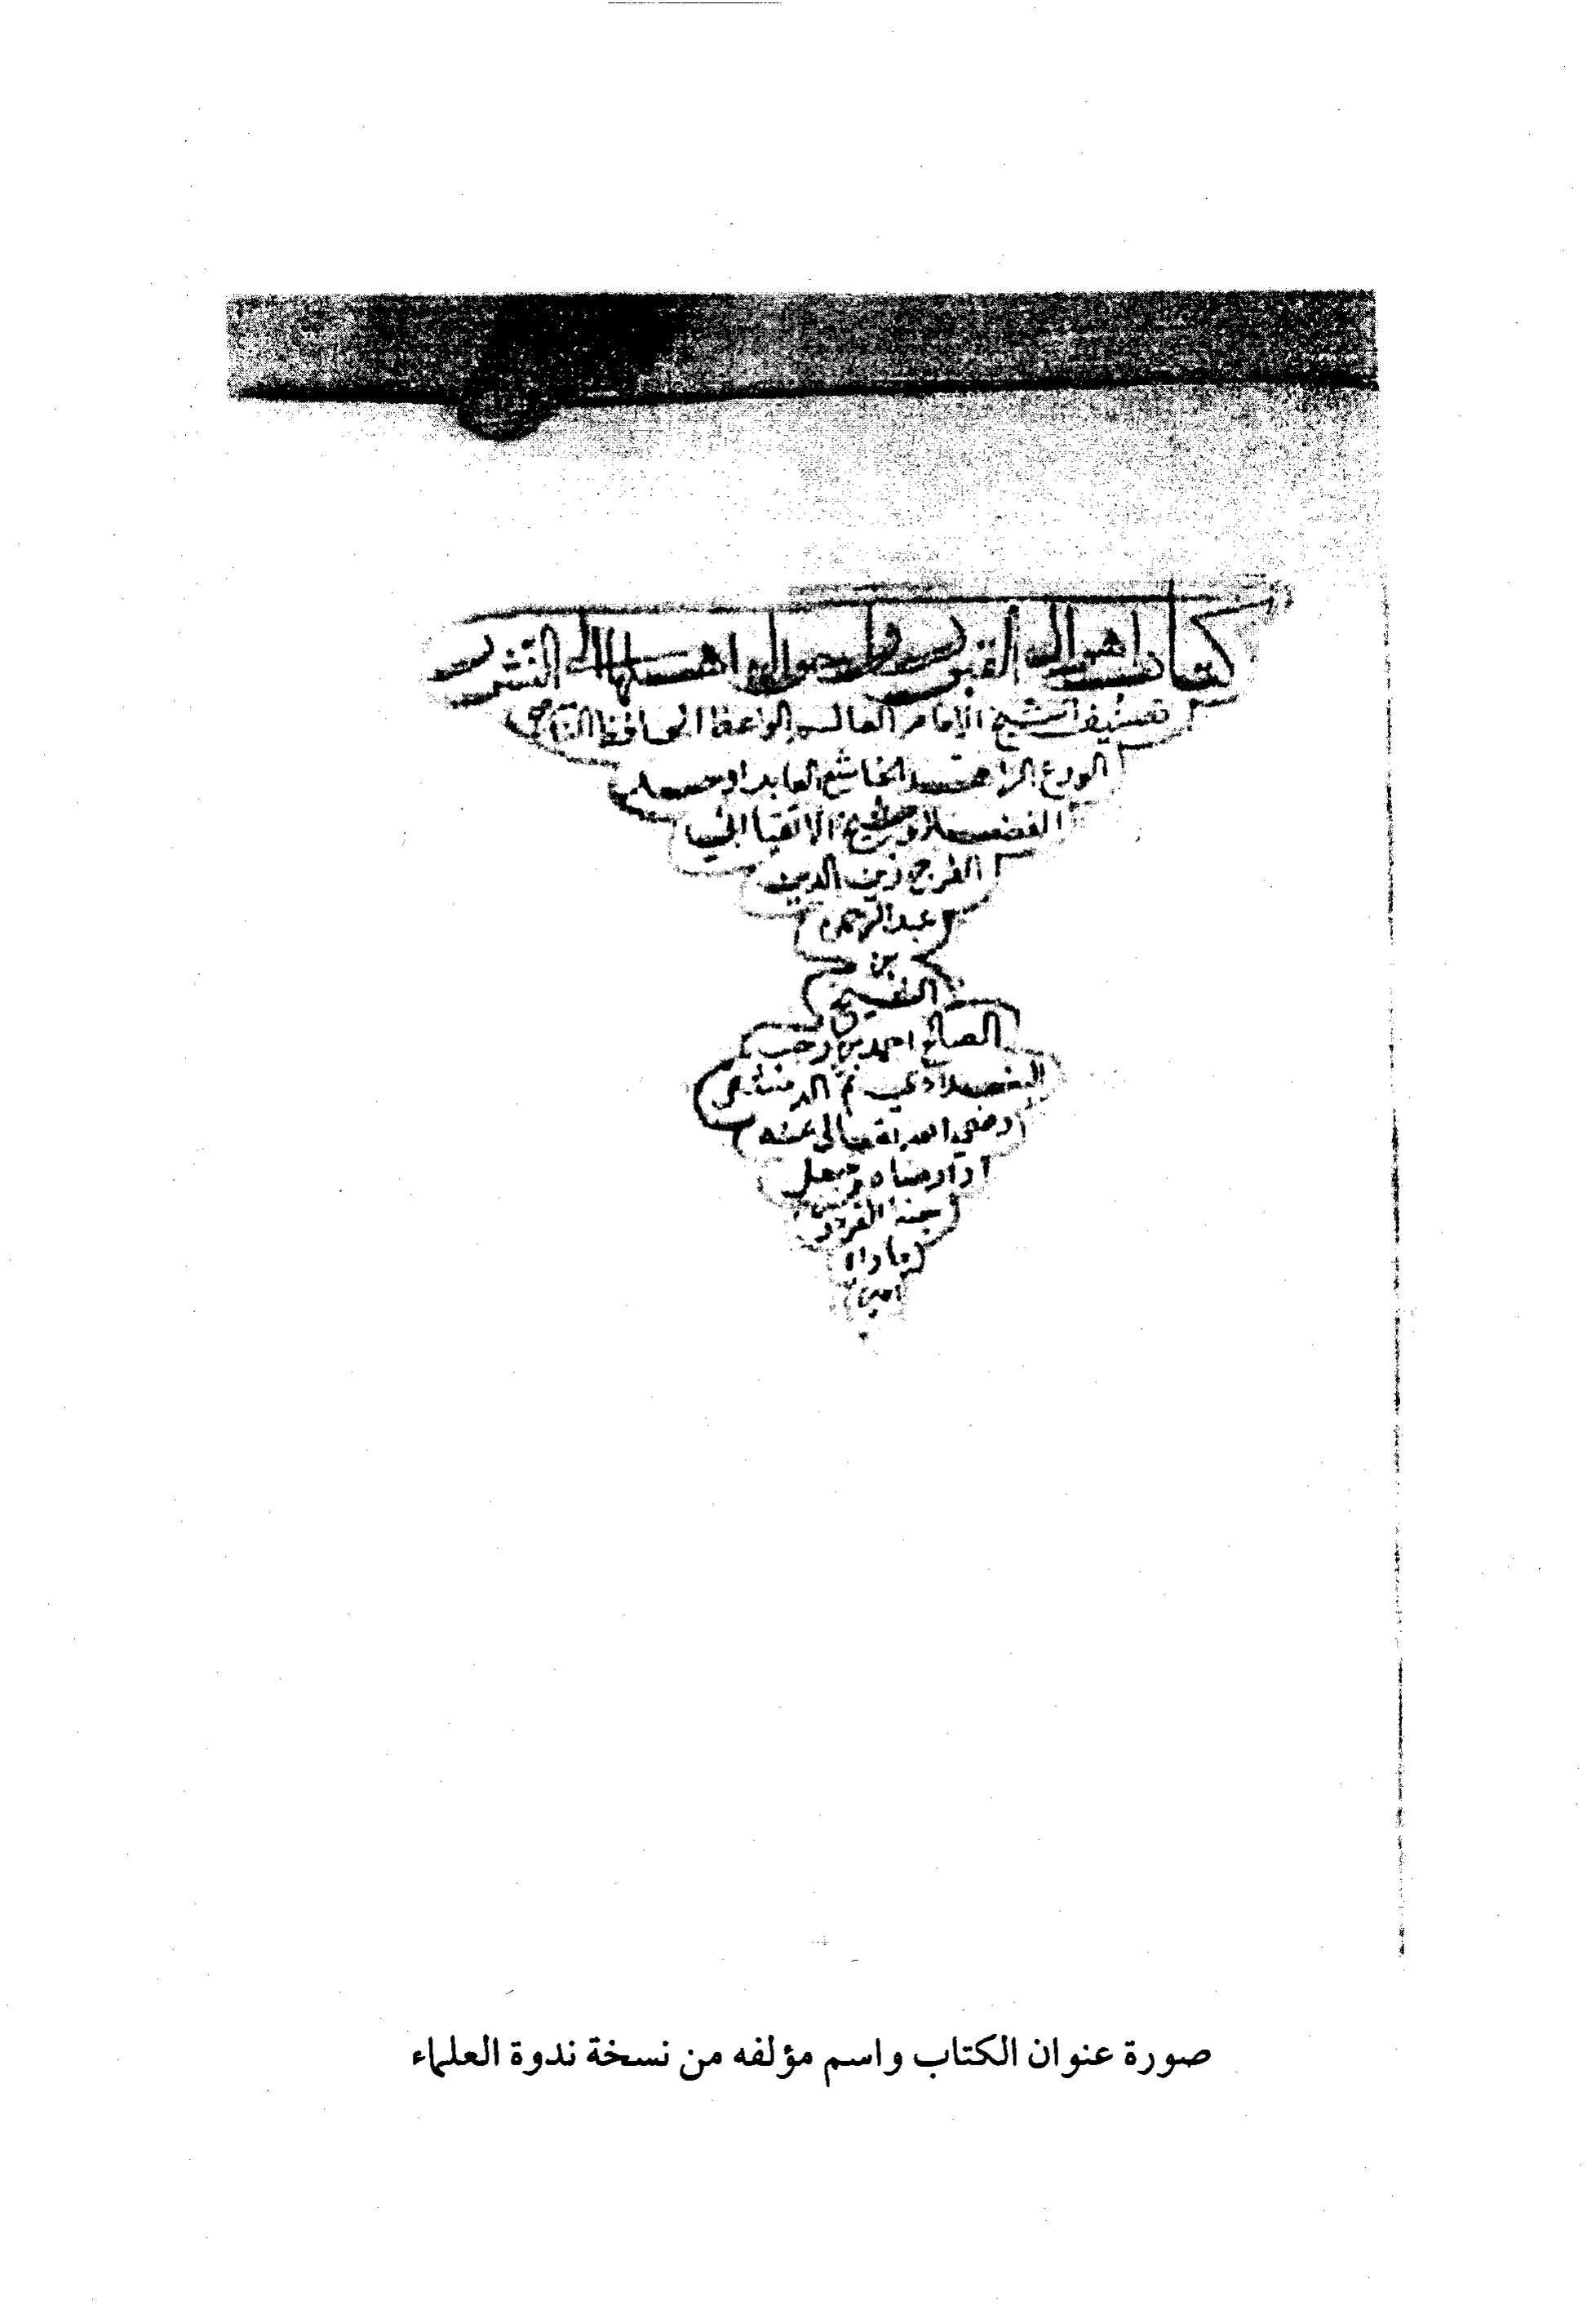 كتاب اهوال القبور واحوال اهلها الى النشور
تصنيف الشيخ الامام العالم الواعظ الحافظ
الورع الزاهد الخاشع العابد اوحد
الفضلا وشيخ الاتقيا ابي
الفرج زين الدين
عبد الرحمن
بن
الشيخ
الصالح احمد بن رجب
البغدادي ثم الدمشقي
رضي الله تعالى عنه
وارضاه وجعل
جنة الفردوس
ماواه
امين
صورة عنوان الكتاب واسم مؤلفه من نسخة ندوة العلماء